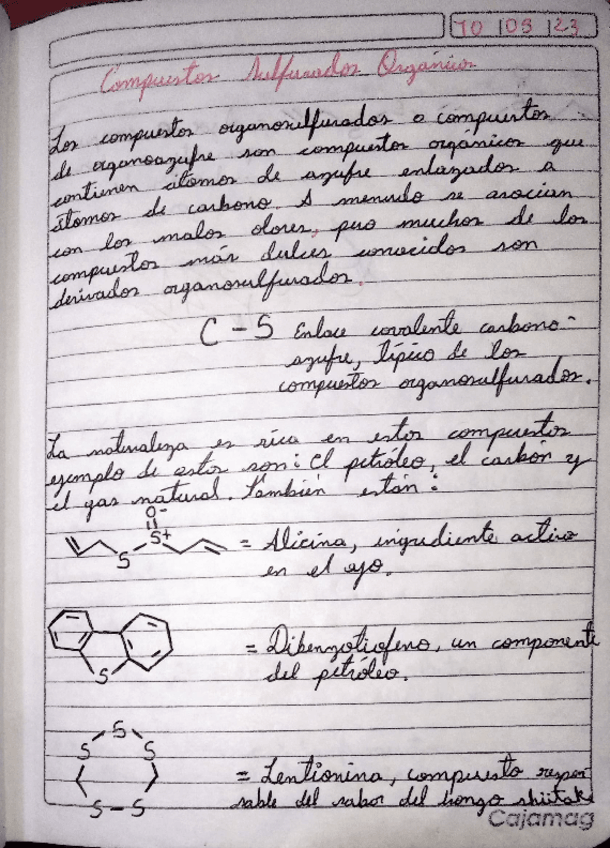 10 | 03 | 23
Compuestos Sulfurados Orgánicos
Los compuestos organosulfurados o compuestos
de organoazufre son compuestos orgánicos que
contienen átomos de azufre enlazados a
átomos de carbono. A menudo se asocian
con los malos olores, pero muchos de los
compuestos más dulces conocidos son
derivados organosulfurados.
C - S Enlace covalente carbono-
azufre, típico de los
compuestos organosulfurados.
La naturaleza es rica en estos compuestos
ejemplo de estos son: El petróleo, el carbón y
el gas natural. También están:
O-
S+
S
= Alicina, ingrediente activo
en el ajo.
S
= Dibenzotiofeno, un componente
del petróleo.
S
S S
S - S
= Lentionina, compuesto respon
sable del sabor del hongo shiitake
Cajamag